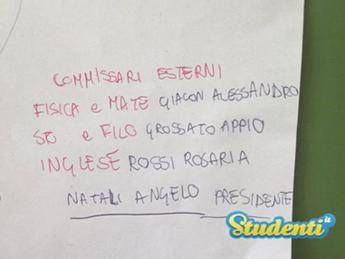 COMMISSARI ESTERNI
FISICA e MATE GIACON ALESSANDRO
STO e FILO GROSSATO APPIO
INGLESE ROSSI ROSARIA
NATALI ANGELO PRESIDENTE
Studenti.it